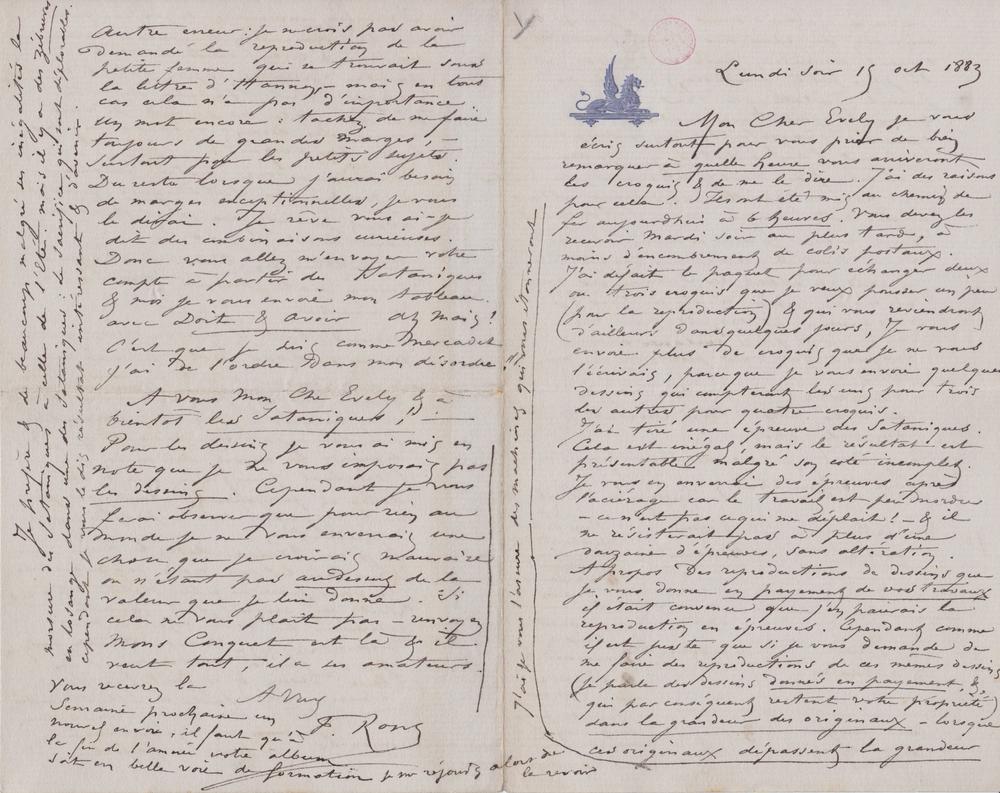 Lundi soir 15 oct 1883
Mon Cher Evely je vous
écris surtout pour vous prier de bien
remarquer à quelle heure vous arriveront
les croquis & de me le dire. J'ai des raisons
pour cela. Ils ont été mis au chemin de
fer aujourdhui à 6 heures. Vous devez les
recevoir Mardi soir au plus tard, à
moins d'encombrement de colis postaux.
J'ai defait le paquet pour échanger deux
ou trois croquis que je veux pousser un peu
(pour la reproduction) & qui vous reviendront
d'ailleurs dans quelques jours, Je vous
envoie plus de croquis que je ne vous
l'écrivais, parce que je vous envoie quelques
dessins qui compteront les uns pour trois
les autres pour quatre croquis.
J'ai tiré une épreuve des Sataniques.
Cela est inégal, mais le résultat est
présentable malgré son coté incomplet.
Je vous en enverrai des épreuves après
l'aciérage car le travail est peu mordu
– ce n'est pas ce qui me déplait! – & il
ne résisterait pas à plus d'une
douzaine d'épreuves, sans altération.
A propos des reproductions de dessins que
je vous donne en payement de vos travaux
il était convenu que j'en paierais la
reproduction en épreuves. Cependant comme
il est juste que si je vous demande de
me faire des reproductions de ces mêmes dessins
(je parle des dessins donnés en payement, &
qui par conséquent restent votre propriété)
dans la grandeur des originaux – lorsque
ces originaux dépassent la grandeur
J'ai je vous l'assure des machines qui vous étonneront
Autre erreur: je ne crois pas avoir
demandé la reproduction de la
petite femme qui se trouvait sous
la lettre d'Hannon – mais en tous
cas cela n'a pas d'importance.
Un mot encore: tachez de me faire
toujours de grandes marges,
surtout pour les petits sujets.
Du reste lorsque j'aurai besoin
de marges exceptionnelles, je vous
le dirai. Je rêve vous ai-je
dit des combinaisons curieuses.
Donc vous allez m'envoyer votre
compte à partir des Sataniques
& moi je vous envoie mon tableau
avec Doit & Avoir ah mais!
C'est que je suis comme Mercadet
j'ai de l'ordre dans mon désordre!!
A vous Mon Cher Evely & à
bientôt les Sataniques!
Pour les dessins je vous ai mis en
note que je ne vous imposais pas
les dessins. Cependant je vous
ferai observer que pour rien au
monde je ne vous enverrais une
chose que je croirais mauvaise
ou n'étant pas audessus de la
valeur que je lui donne. Si
cela ne vous plaît pas – renvoyez
Mons Conquet est là & il
veut tout, il a ses amateurs.
A Vous
F. Rops
Vous recevrez la
Semaine prochaine un
nouvel envoi, il faut qu'à
la fin de l'année votre album
soit en belle voie de formation je me réjouis alors de
le revoir
Je préfère & de beaucoup malgré ses inégalités la
morsure des Sataniques à celle de l'Eté. mais il y a des zébrures
en losange dans une des Sataniques: le Sacrifice, qui sont déplorables.
cependant je vous le dis résultat intéressant & d'avenir.